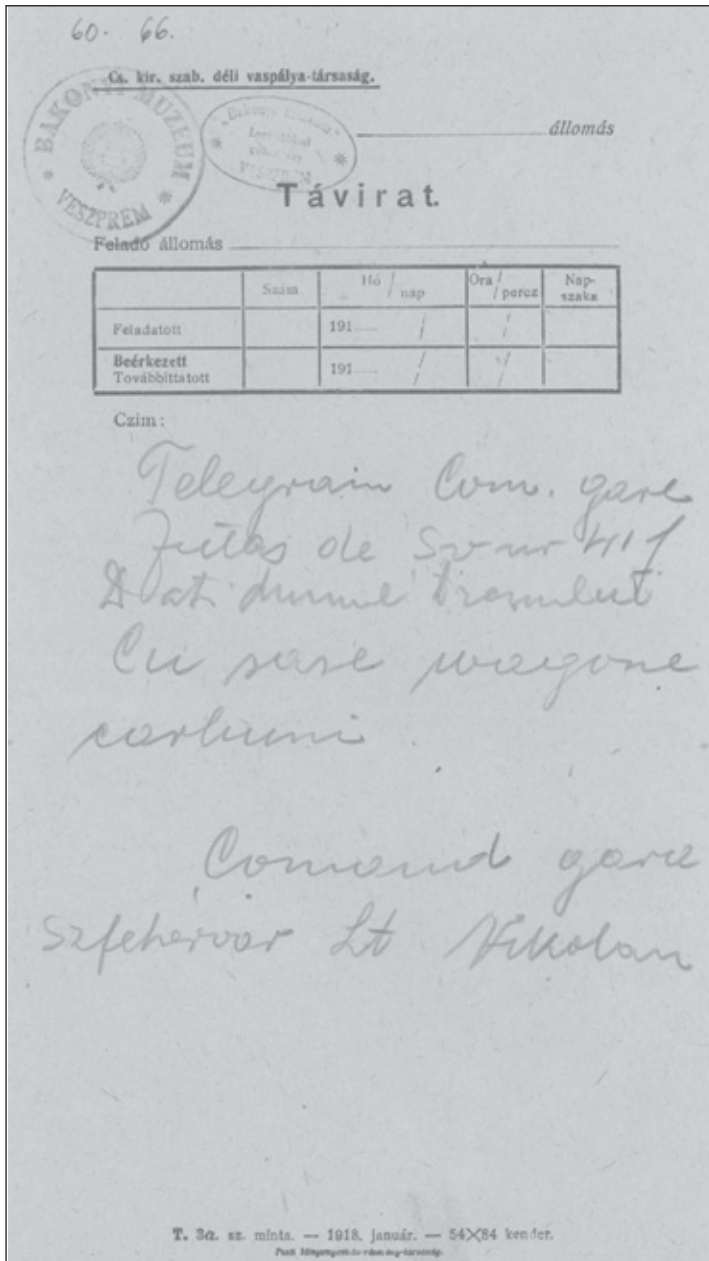 60. 66.
Cs. kir. szab. déli vaspálya-társaság.
BAKONYI MUZEUM
VESZPRÉM
"Bakonyi Múzeum"
VESZPRÉM
állomás
Távirat.
Feladó állomás
Szám Hó / nap Óra / percz Nap-szaka
Feladatott 191 / /
Beérkezett
Továbbíttatott 191 / /
Czim:
Telegram Com. gare
Jutas de
Dati drumul trenului
Cu sase wagone
carbuni.
Comand gara
Szfehérvar Lt
T. 3a. sz. minta. — 1918. január. — 54×84 kender.